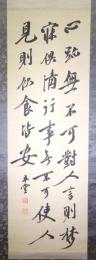 心跡無不可對人言則夢
寐俱清行事務不可使人
見則飲食皆安